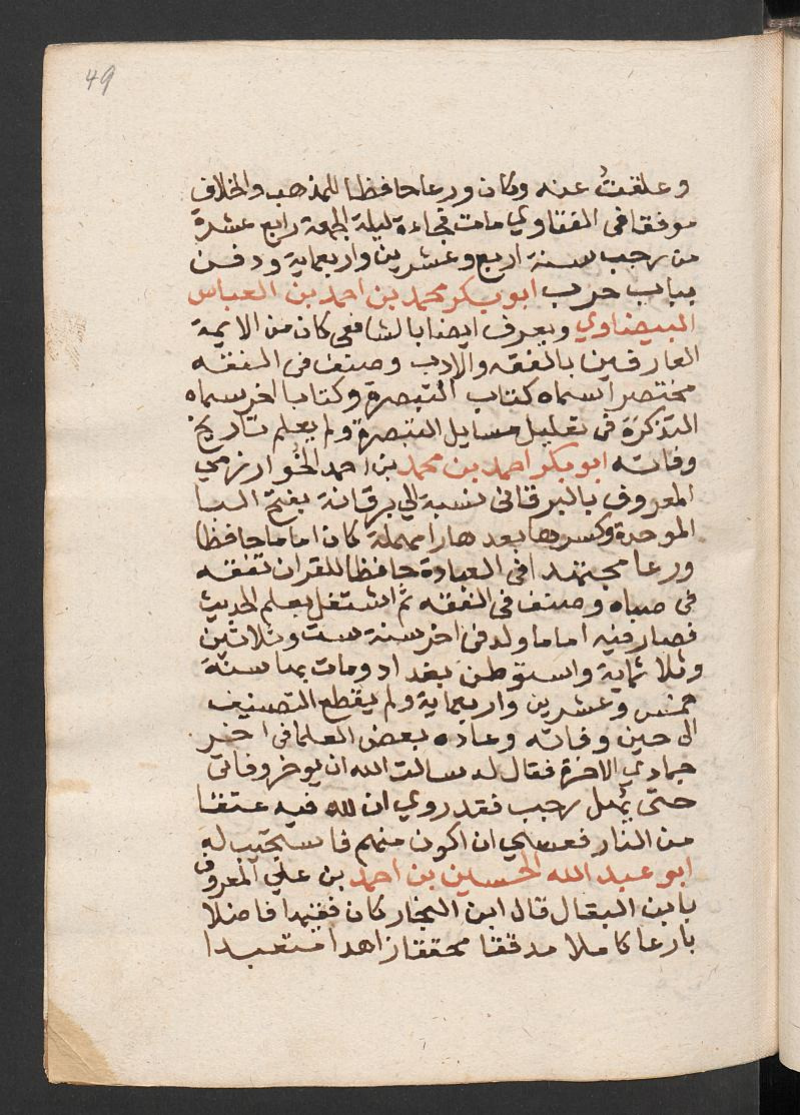 49
وعلقت عنه وكان ورعا حافظا للمذهب والخلاف
موفقا فى الفتاوي مات فجاءة ليلة الجمعة رابع عشرة
من رجب سنة اربع وعشرين واربعماية ودفن
بباب حرب ابو بكر محمد بن احمد بن العباس
البيضاوي ويعرف ايضا بالشافعى كان من الايمة
العارفين بالفقه والادب وصنف فى الفقه
مختصرا سماه كتاب التبصرة وكتابا اخر سماه
التذكرة فى تعليل مسايل التبصرة ولم يعلم تاريخ
وفاته ابو بكر احمد بن محمد بن احمد الخوارزمي
المعروف بالبرقانى نسبة الي برقانة بفتح البا
الموحدة وكسرها بعدها را مهملة كان اماما حافظا
ورعا مجتهدا فى العبادة حافظا للقران تفقه
فى صباه وصنف فى الفقه ثم اشتغل بعلم الحديث
فصار فيه اماما ولد فى اخر سنة ست وثلاثين
وثلا ثماية واستوطن بغداد ومات بها سنة
خمس وعشرين واربعماية ولم يقطع التصنيف
الى حين وفاته وعاده بعض العلما فى اخر
جمادي الاخرة فقال له سالت الله ان يوخر وفاتى
حتى يهل رجب فقد روي ان لله فيه عتقا
من النار فعسي ان اكون منهم فاستجيب له
ابو عبد الله الحسين بن احمد بن علي المعروف
بابن البقال قال ابن النجار كان فقيها فاضلا
بارعا كاملا مدققا محققا زاهدا متعبدا